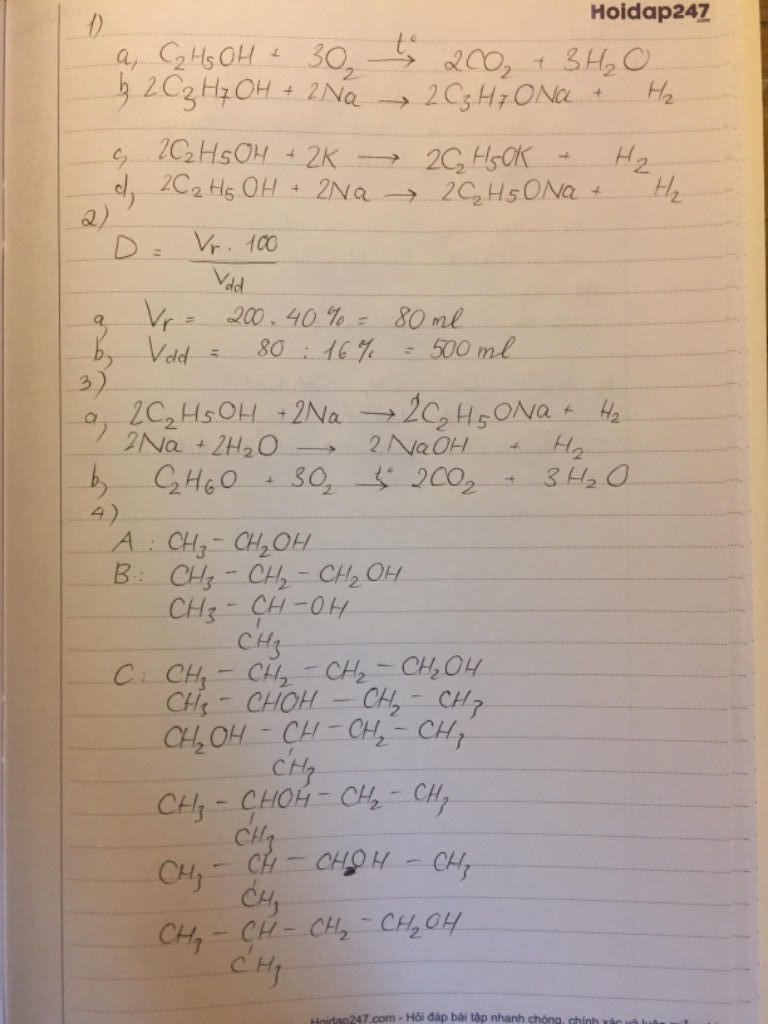 Hoidap247
1)
a, C₂H₅OH + 3O₂ —t°→ 2CO₂ + 3H₂O
b, 2C₃H₇OH + 2Na → 2C₃H₇ONa + H₂
c, 2C₂H₅OH + 2K → 2C₂H₅OK + H₂
d, 2C₂H₅OH + 2Na → 2C₂H₅ONa + H₂
2)
D = Vr . 100
Vdd
a, Vr = 200 . 40% = 80 ml
b, Vdd = 80 : 16% = 500 ml
3)
a, 2C₂H₅OH + 2Na → 2C₂H₅ONa + H₂
2Na + 2H₂O → 2NaOH + H₂
b, C₂H₆O + 3O₂ —t°→ 2CO₂ + 3H₂O
4)
A : CH₃ – CH₂OH
B : CH₃ – CH₂ – CH₂OH
CH₃ – CH – OH
CH₃
C : CH₃ – CH₂ – CH₂ – CH₂OH
CH₃ – CHOH – CH₂ – CH₃
CH₂OH – CH – CH₂ – CH₃
CH₃
CH₃ – CHOH – CH₂ – CH₃
CH₃
CH₃ – CH – CHOH – CH₃
CH₃
CH₃ – CH – CH₂ – CH₂OH
CH₃
Hoidap247.com - Hỏi đáp bài tập nhanh chóng, chính xác và